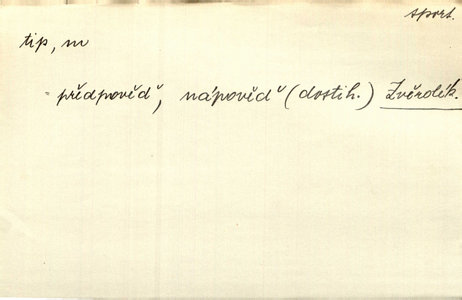 sport.
tip, m
předpověď, nápověď (dostih.) Zvěrolék.